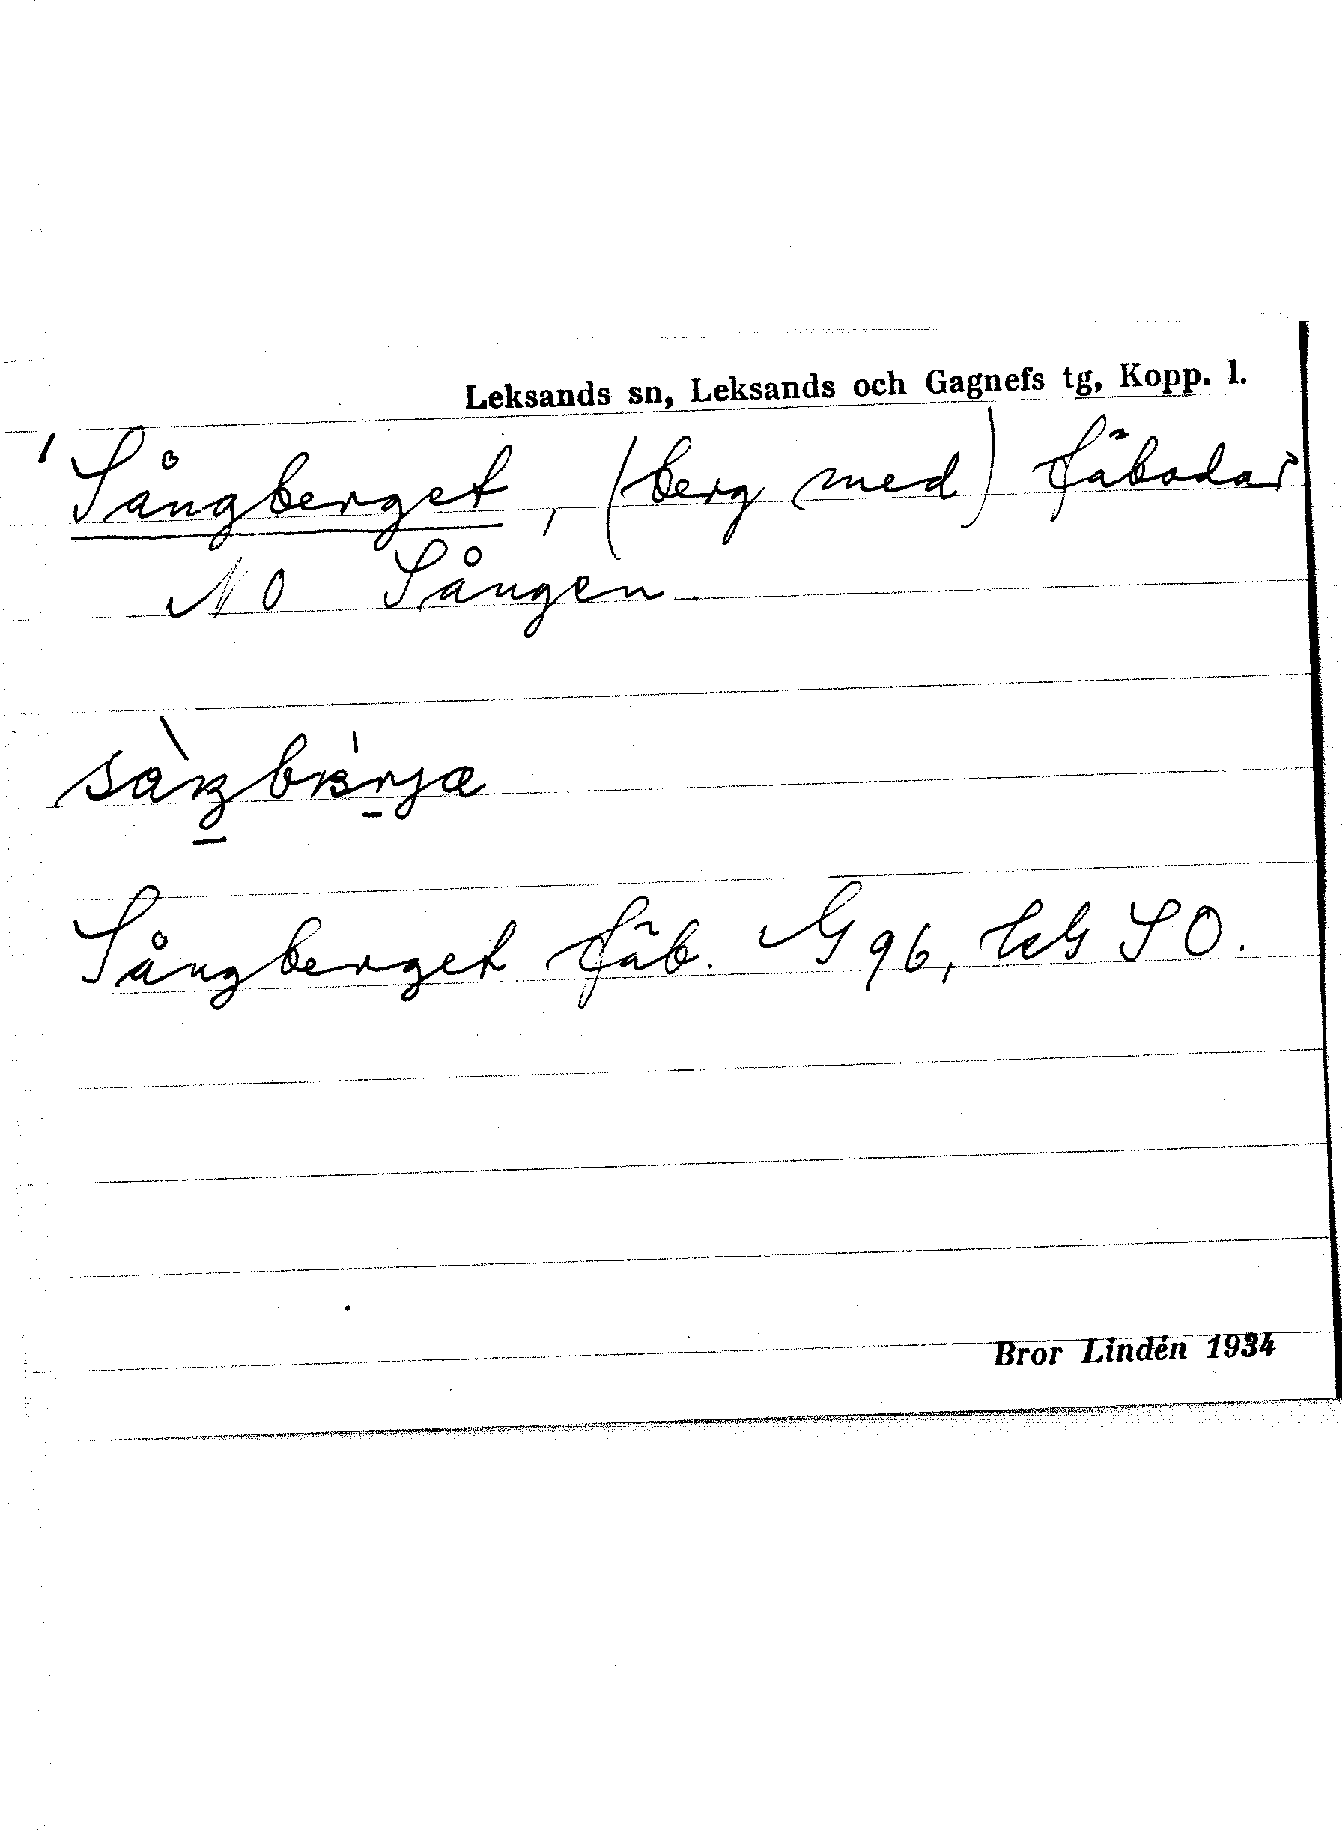 Leksands sn, Leksands och Gagnefs tg, Kopp. l.
Sångberget, (berg med) fäbodar
NO Sången
Sångberget fäb. G 96, SO.
Bror Lindén 1934